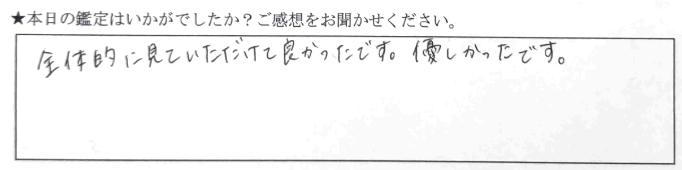 ★本日の鑑定はいかがでしたか？ご感想をお聞かせください。
全体的に見ていただけて良かったです。優しかったです。